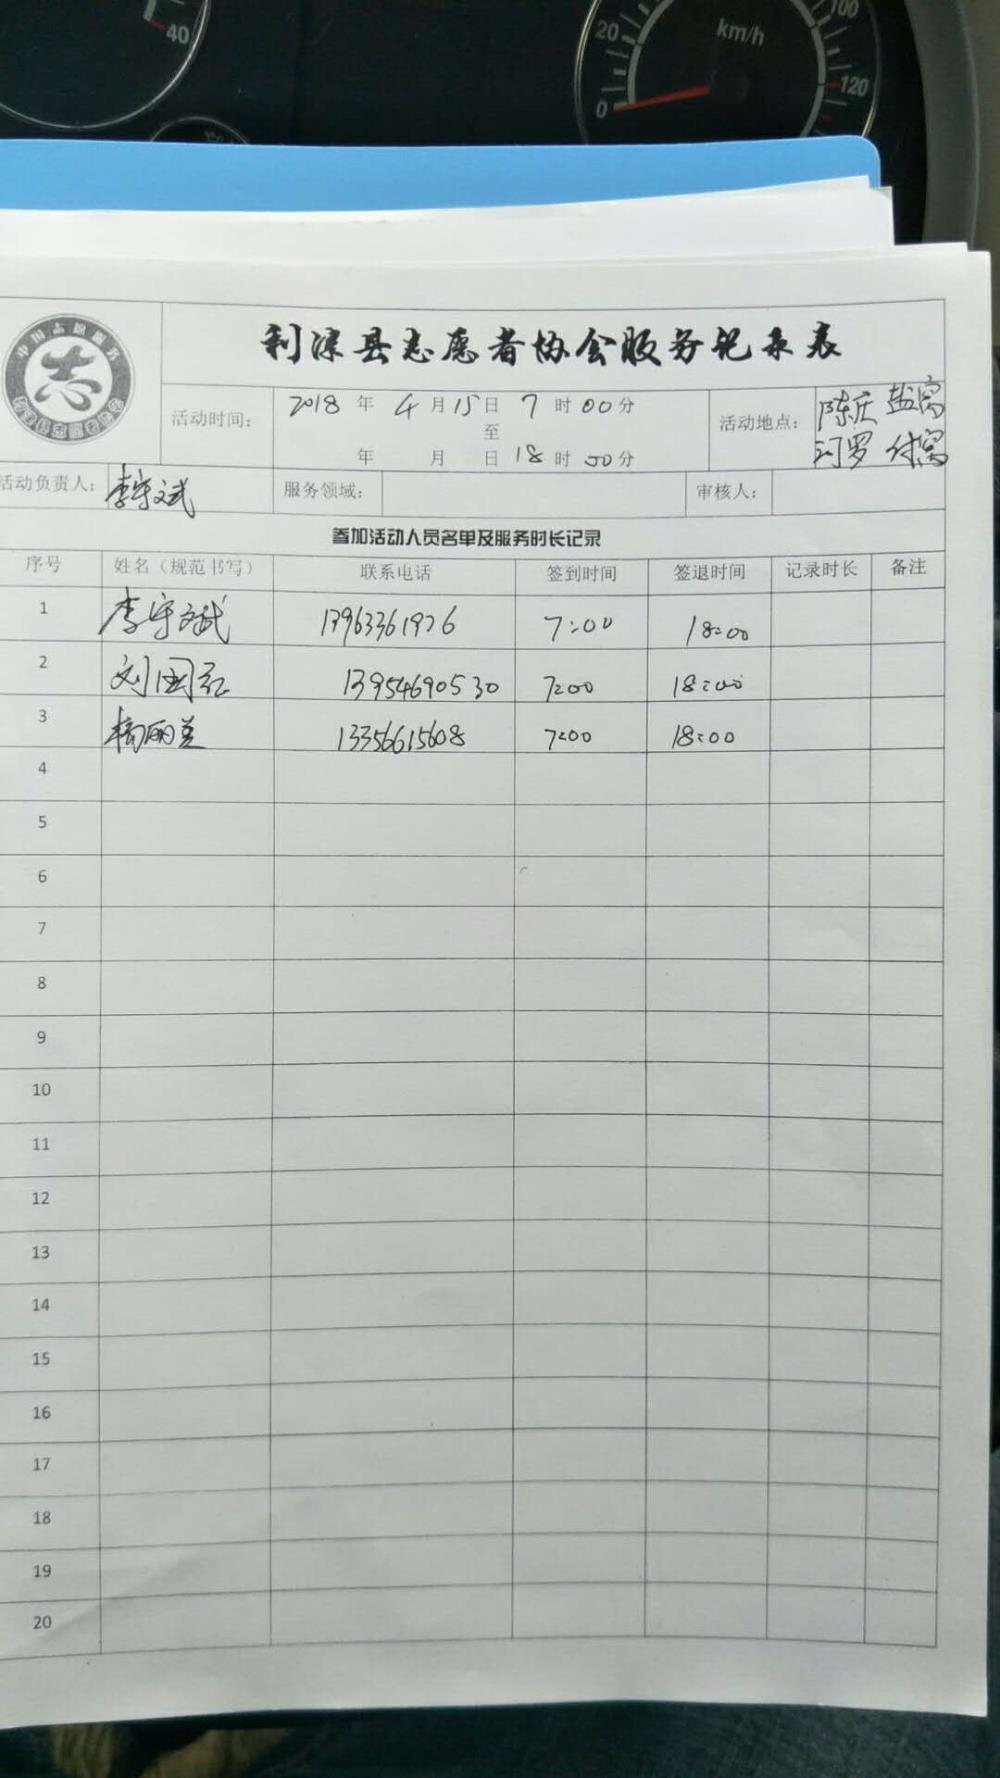 40
20
0
km/h
100
120
中国志愿服务
志
利津县志愿者协会服务记录表
活动时间: 2018 年 4 月 15 日 7 时 00 分
至
年 月 日 18 时 00 分
活动地点: 陈庄 盐窝
汀罗 付窝
活动负责人: 李守斌 服务领域: 审核人:
参加活动人员名单及服务时长记录
序号 姓名（规范书写） 联系电话 签到时间 签退时间 记录时长 备注
1 李守斌 13963361976 7:00 18:00
2 刘国红 13954690530 7:00 18:00
3 杨丽兰 13356615608 7:00 18:00
4
5
6
7
8
9
10
11
12
13
14
15
16
17
18
19
20